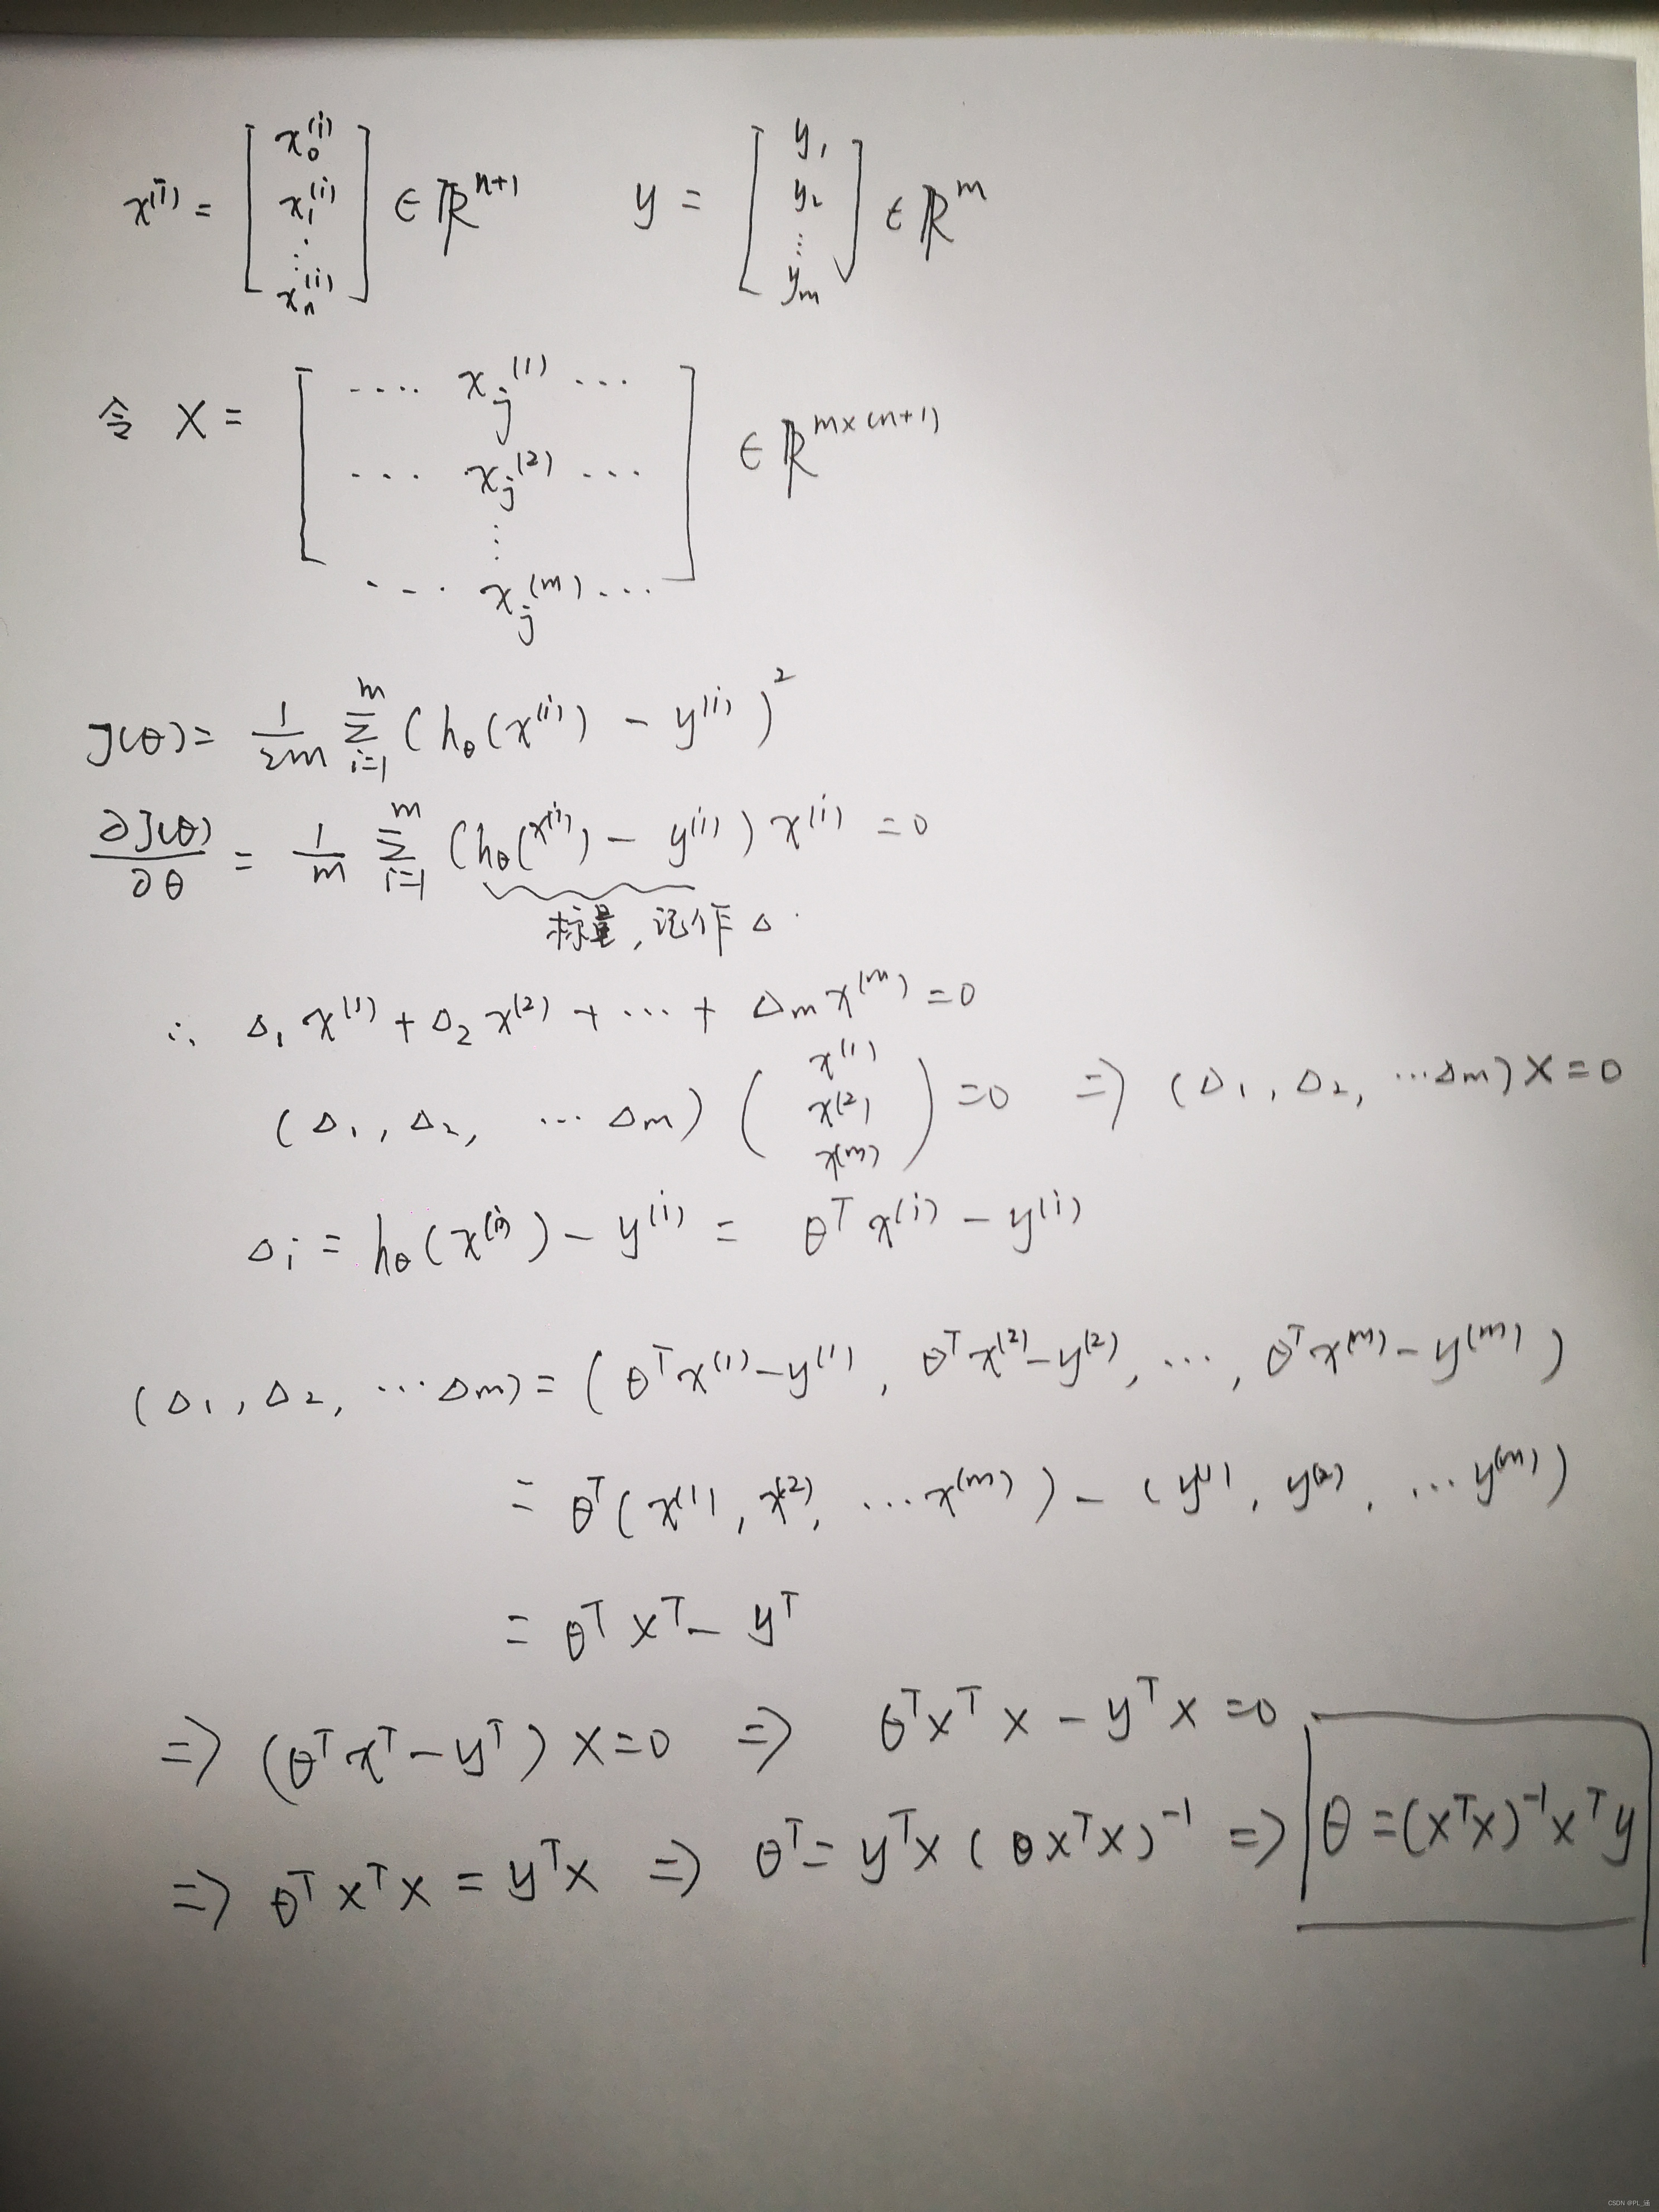 x^(i) = [ x_0^(i) x_1^(i) ⋮ x_n^(i) ] ∈ ℝ^(n+1)    y = [ y_1 y_2 ⋮ y_m ] ∈ ℝ^m
令 X = [ ···· x_j^(1) ··· 
··· x_j^(2) ···
⋮
··· x_j^(m) ··· ] ∈ ℝ^(m×(n+1))
J(θ) = 1/2m Σ_{i=1}^m (h_θ(x^(i)) − y^(i))^2
∂J(θ)/∂θ = 1/m Σ_{i=1}^m (h_θ(x^(i)) − y^(i)) x^(i) = 0
标量,记作 Δ
∴ Δ_1 x^(1) + Δ_2 x^(2) + ··· + Δ_m x^(m) = 0
(Δ_1, Δ_2, ··· Δ_m) ( x^(1) x^(2) x^(m) ) = 0 ⇒ (Δ_1, Δ_2, ··· Δ_m) X = 0
Δ_i = h_θ(x^(i)) − y^(i) = θ^T x^(i) − y^(i)
(Δ_1, Δ_2, ··· Δ_m) = (θ^T x^(1) − y^(1), θ^T x^(2) − y^(2), ···, θ^T x^(m) − y^(m))
= θ^T (x^(1), x^(2), ··· x^(m)) − (y^(1), y^(2), ··· y^(m))
= θ^T X^T − y^T
⇒ (θ^T X^T − y^T) X = 0 ⇒ θ^T X^T X − y^T X = 0
⇒ θ^T X^T X = y^T X ⇒ θ^T = y^T X (θX^T X)^−1 ⇒ θ = (X^T X)^−1 X^T y
CSDN @PL_涵